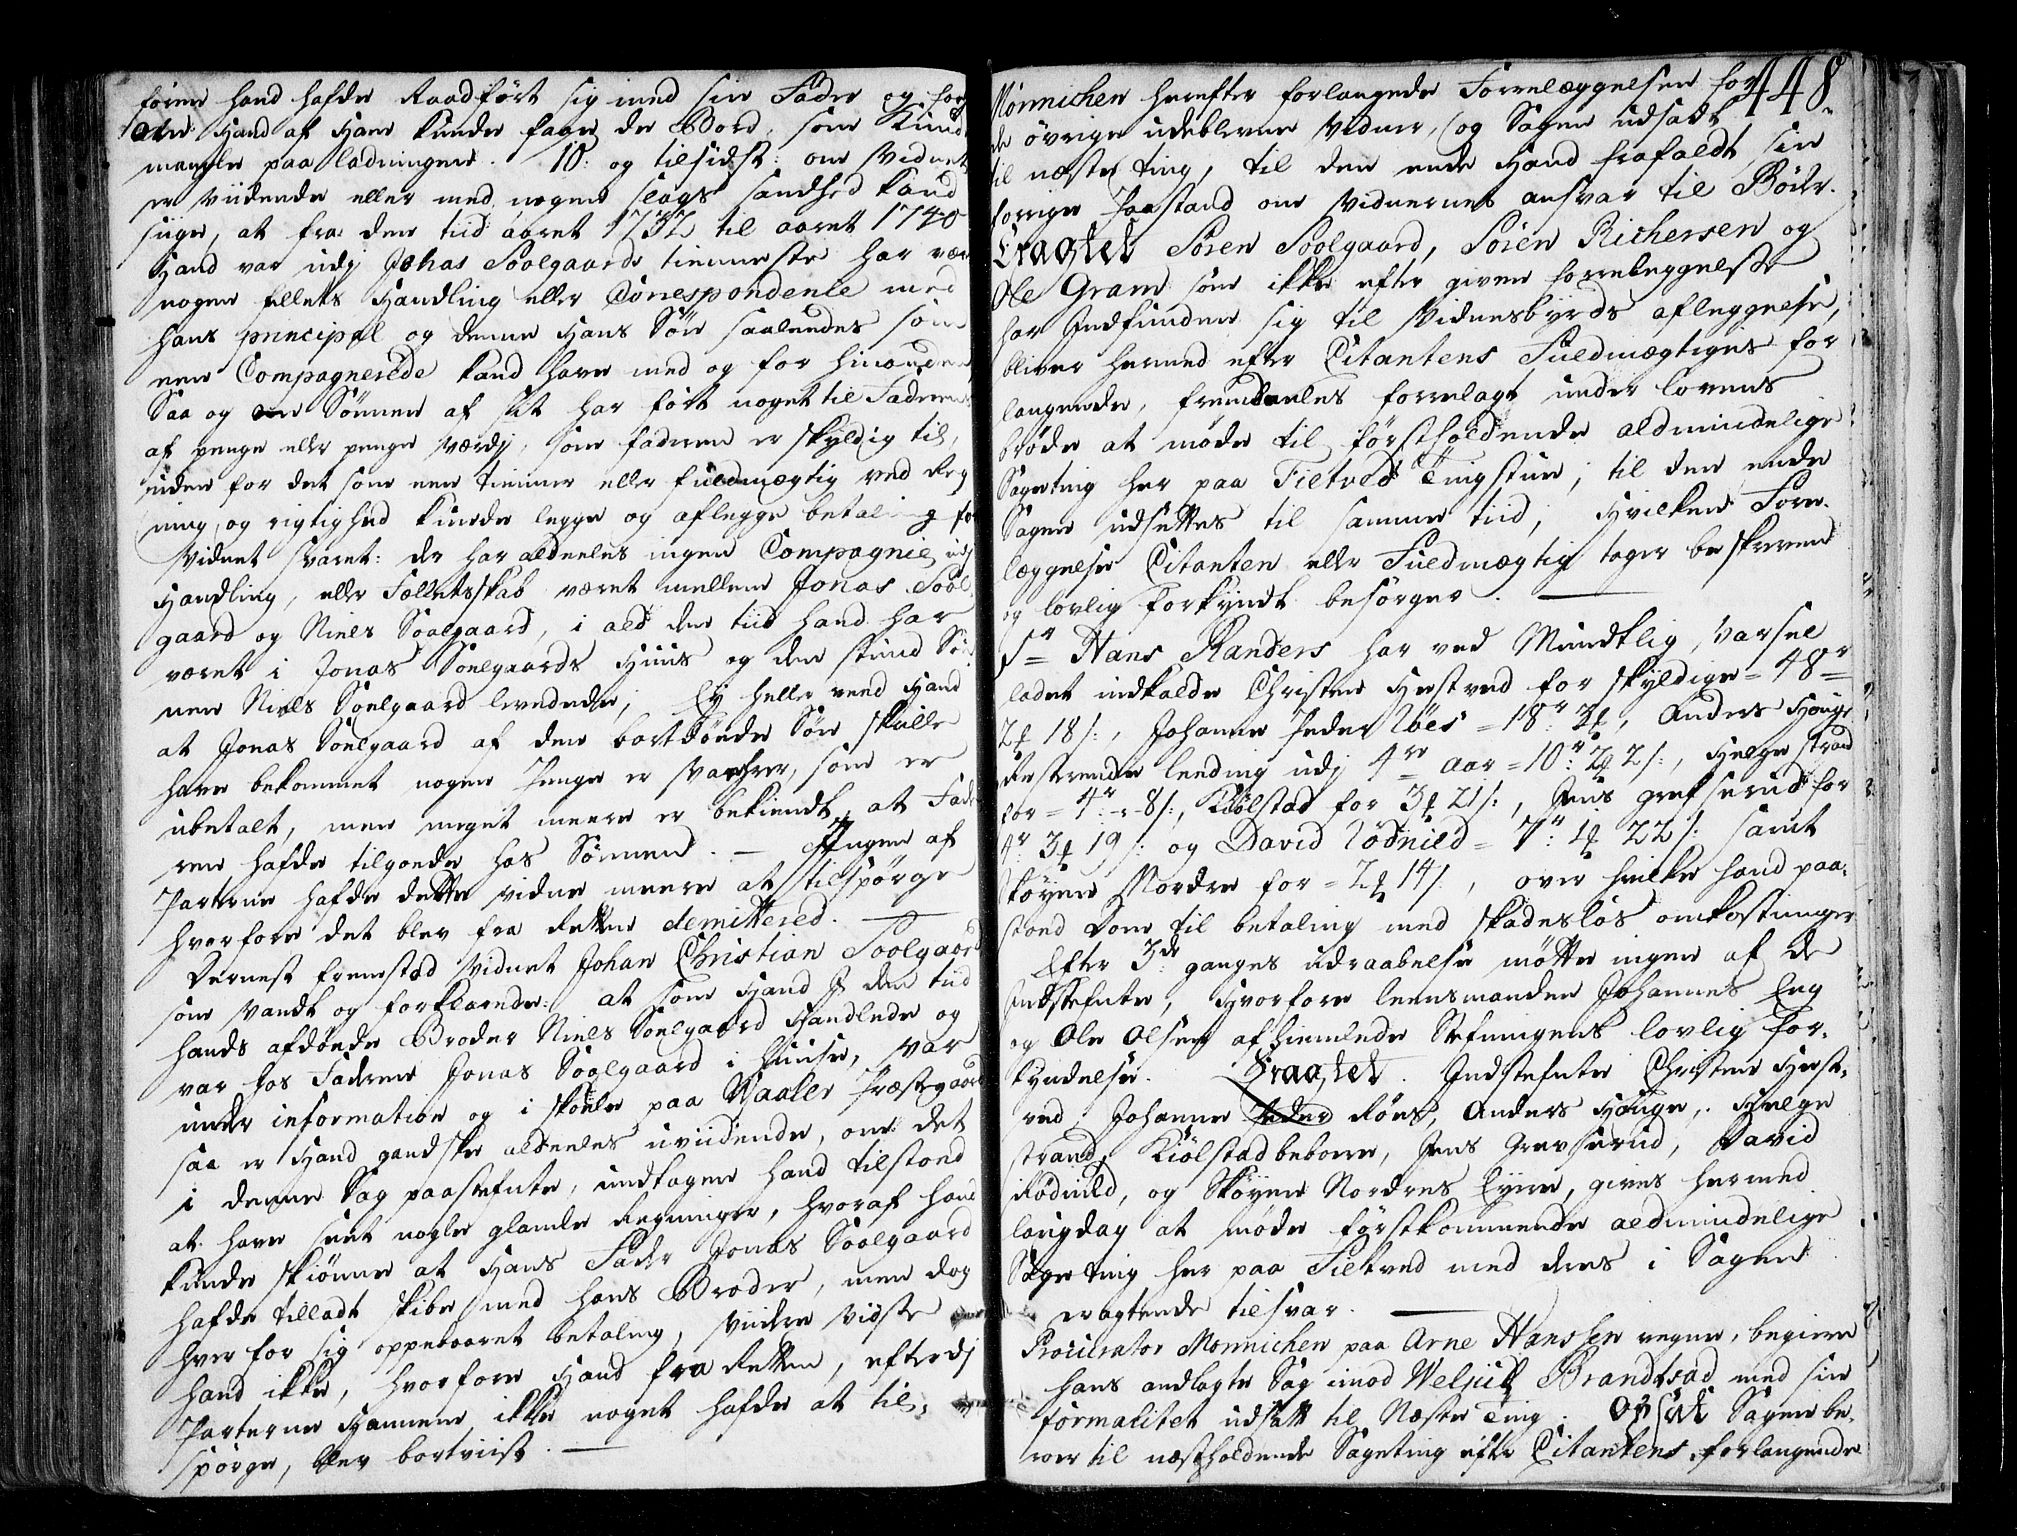 førend hand hafde Raadført sig med sin Fader og for
om Hand af Ham kunde faae de Bord, som kunde
mangle paa ladningen. 10: og tilsidst: om Vidnet
er vidende eller med nogen slags sandhed kand
siige, at fra den tiid aaret 1732 til aaret 1740
Hand var udj Johas Soelgaards tienneste har vær
nogen fellets Handling eller Correspondence med
hans principal og denne Hans Søn saaledes som
een Compagnerede kand have med og for hinanden
Saa og om Sønnen af sit har ført noget til Faderens
af penge eller penge værdj, som faderen er skyldig til,
uden for det som een Tienner eller fuldmægtig ved Reg
ning og rigtighed kunde legge og aflegge betaling for
Vidnet svaret: der har aldeeles ingen Compagnie udj
Handling, eller Fellitsskab været mellem Jonas Sool
gaard og Niels Soolgaard, i ald den tiid hand har
været i Jonas Soelgaards Huus og den stund Søn
nen Niels Soelgaard levedede; Ey heller veed Hand
at Jonas Soelgaard af den bortdøde Søn skulle
have bekommet nogen Penge er Vahrer, som er
ubetalt, men meget meere er bekiendt, at Fade
ren hafde tilgode hos Sønnen. — Ingen af
Parterne hafde dette Vidne meere at tilspørge
hvorfore det blev fra Retten demittered. —
Dernest fremstod Vidnet Johan Christian Soolgaard
som vandt og forklarede: at som Hand J den tiid
hands afdøde Broder Niels Soelgaard Handlede og
var hos Faderen Jonas Soelgaard i Huuse, var
under information og i skoele paa Waaler Præstegaard
saa er Hand gandske aldeeles uvidende, om det
i denne Sag paastefnte, undtagen hand tilstoed
at have seet nogle gamle Regninger, hvoraf hand
kunde skiønne at Hans Fader Jonas Soolgaard
hafde tilladt skibe med hans Broder, men dog
hver for sig oppebaaret betaling, viidere vidste
hand ikke, hvorfore Hand fra Retten, efterdj
Parterne Hannem ikke noget hafde at til,
spørge, blev bortviist. —
448.
Mønnichen herefter forlangede Forrelæggelsen for
de øvrige udeblevne Vidner, og Sagen udsadt
til næste Ting, til den ende Hand frafaldt sin
forrige Paastand om Vidnernes ansvar til Bøder.
Eragtet Søren Soolgaard, Søren Richersen og
Ole Gram som ikke efter given forreleggelse
har Indfunden sig til Vidnesbyrds afleggelse,
bliver hermed efter Citantens Fuldmægtiges for
langende, fremdeeles forrelagt under lovens
brøde at møde til førstholdende aldmindelige
Sageting her paa Fietved Tingstue, til den ende
Sagen udsettes til samme tiid, Hvilken Forre-
læggelse Citanten eller Fuldmægtig tager beskreven
og lovlig Forkyndt besørger. —
Sr Hans Randers har ved Mundtlig, Varsel
ladet indkalde Christen Hestved for skyldige = 48 r
2 ₰ 18 s:, Johanne Peder Røes = 18 r: 3 ₰, Anders Houge
Resterende leeding udj 4re aar = 10 r: 2 ₰ 2 s:, Helge strand
for = 4 r: - 8 s:, Kiølstad for 3 ₰ 21 s:, Jens grefserud for
4 r: 3 ₰ 19 s: og David Rødnild = 7 r: 1 ₰ 22 s: samt
Skøyen Nordre for = 2 ₰ 14 s:, over hvilke hand paa-
stoed Dom til betaling med skadesløs omkostninger
Efter 3de ganges udraabelse mødte ingen af de
Indstefnte, Hvorfore leensmanden Johannes Eng
og Ole Olsen afhiemlede Stefningens lovlig For-
kyndelse. Eragtet. Indstefnte Christen Hest-
ved, Johanne Peder Røes, Anders Houge, Helge
strand, Kiølstad beboere, Jens Grevserud, David
Rødnild, og Skøyen Nordres Eyere, gives hermed
laugdag at møde førstkommende aldmindelige
Sage ting her paa Fietved med deres i Sagen
eragtende tilsvar. —
Procurator Monnichen paa Arne Hanssen vegne, begiere
hans anlagte Sag imod Welsiit Brandtsad med sin
formalitet udsatt til Næste Ting. Opsatt Sagen be-
roer til næstholdende Sageting efter Citantens forlangende